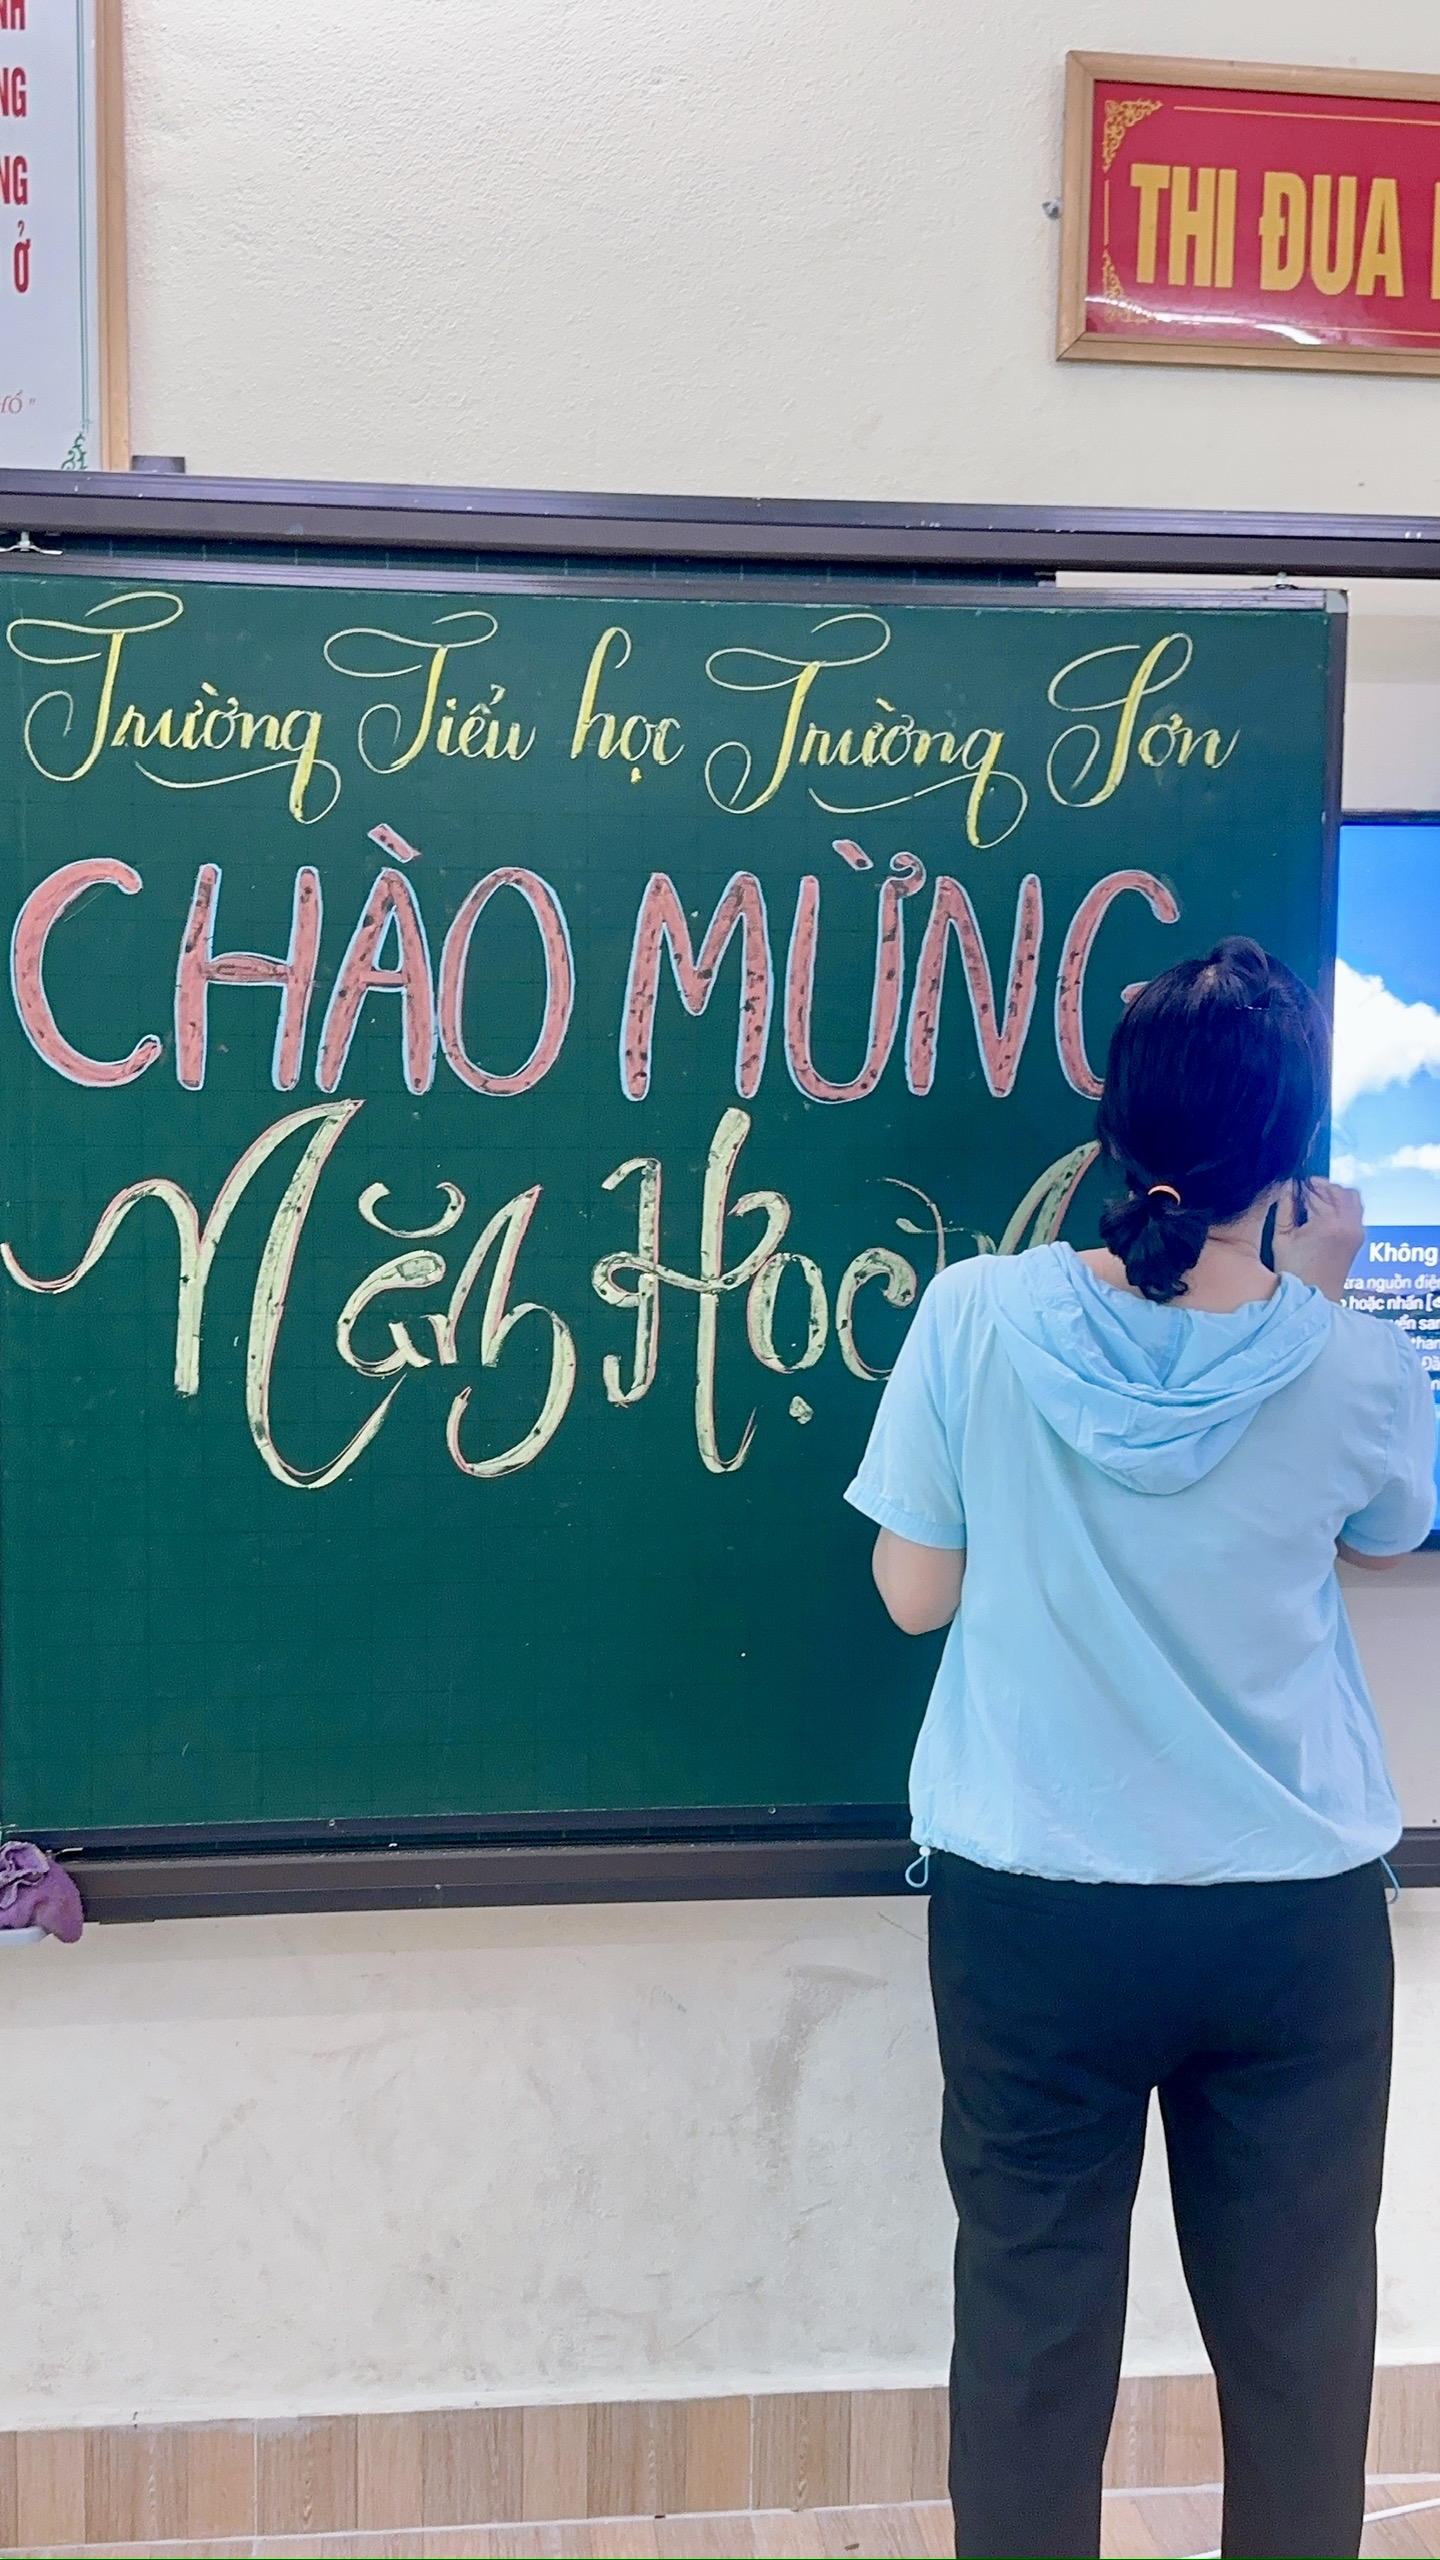 NG
NG
Ở
THI ĐUA
Trường Tiểu học Trường Sơn
CHÀO MỪNG
Năm Học
Không
tra nguồn điện
hoặc nhấn